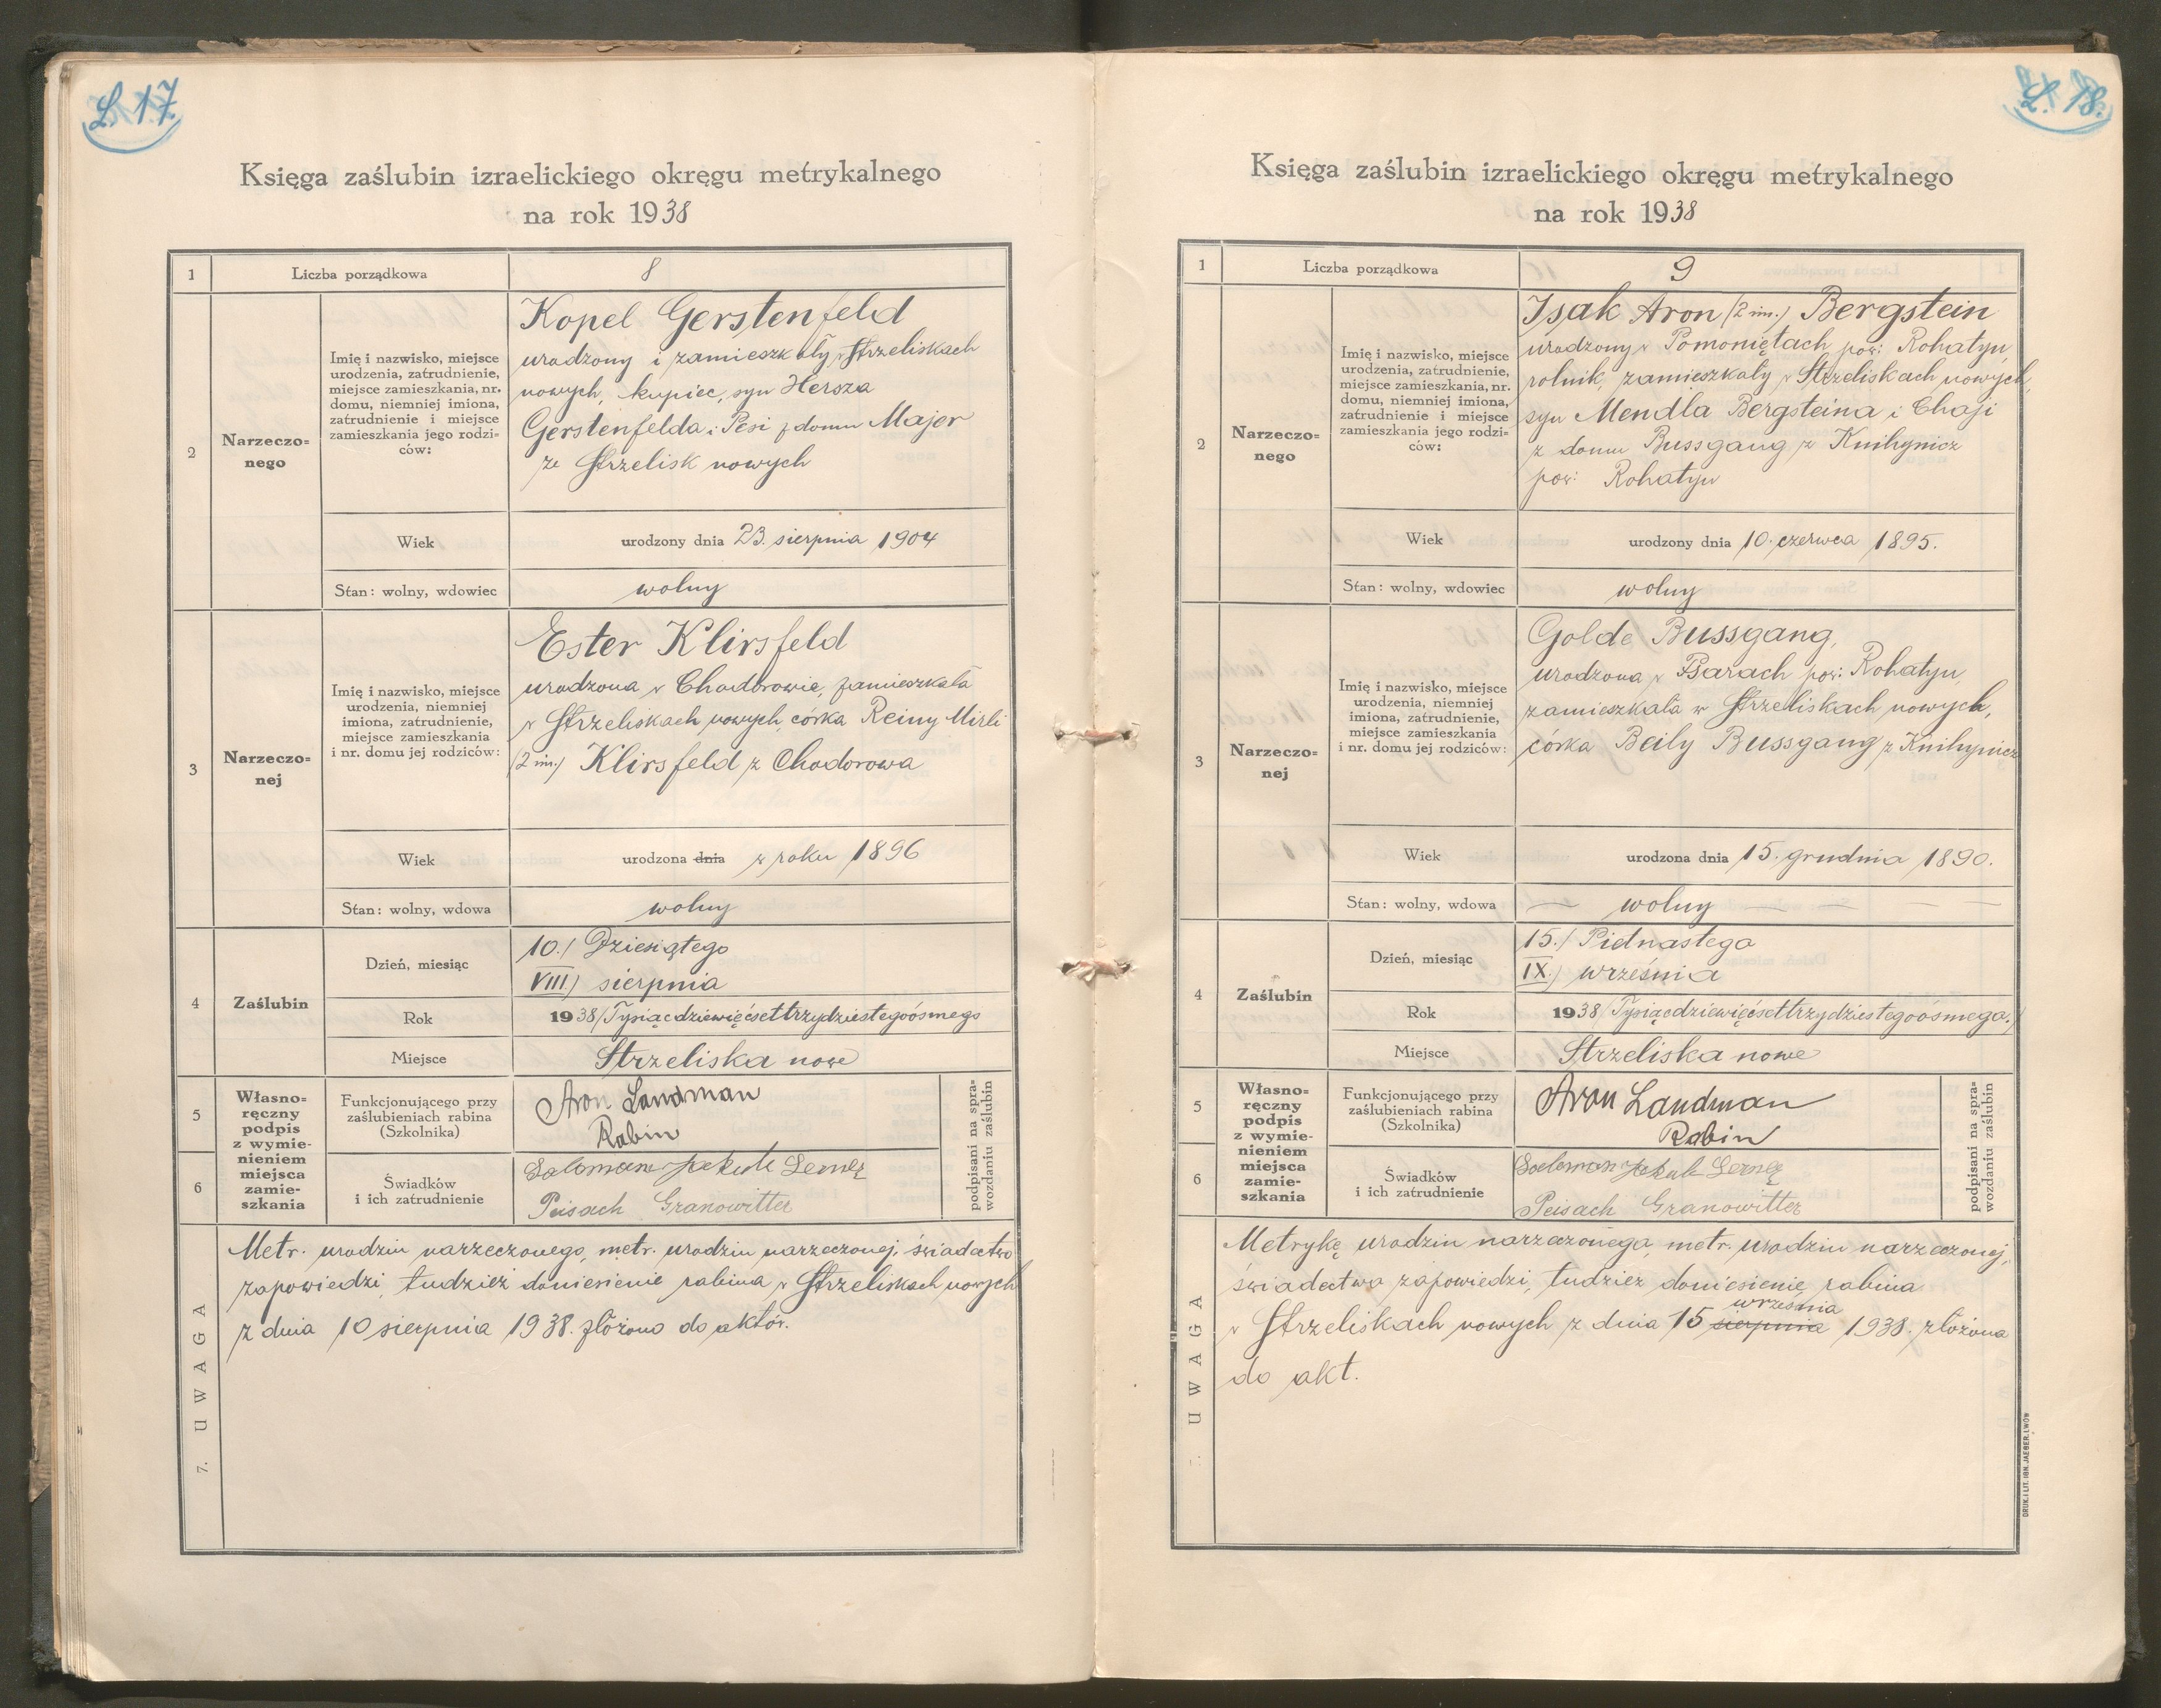 L. 17
Księga zaślubin izraelickiego okręgu metrykalnego
na rok 1938
1
Liczba porządkowa
8
2
Narzeczo=
nego
Imię i nazwisko, miejsce
urodzenia, zatrudnienie,
miejsce zamieszkania, nr.
domu, niemniej imiona,
zatrudnienie i miejsce
zamieszkania jego rodzi=
ców:
Kopel Gerstenfeld
urodzony i zamieszkały w Strzeliskach
nowych, kupiec, syn Hersza
Gerstenfelda i Pesi z domu Majer
ze Strzelisk nowych
Wiek
urodzony dnia 23. sierpnia 1904
Stan: wolny, wdowiec
wolny
3
Narzeczo=
nej
Imię i nazwisko, miejsce
urodzenia, niemniej
imiona, zatrudnienie,
miejsce zamieszkania
i nr. domu jej rodziców:
Ester Klirsfeld
urodzona w Chodorowie, zamieszkała
w Strzeliskach nowych, córka Reiny Mirli
(2 im.) Klirsfeld z Chodorowa
Wiek
urodzona dnia w roku 1896
Stan: wolny, wdowa
wolny
4
Zaślubin
Dzień, miesiąc
10./ Dziesiątego
VIII) sierpnia
Rok
1938/Tysiącdziewięćsettrzydziestegoósmego
Miejsce
Strzeliska nowe
5
6
Własno=
ręczny
podpis
z wymie-
nieniem
miejsca
zamie-
szkania
Funkcjonującego przy
zaślubieniach rabina
(Szkolnika)
Aron Landman
Rabin
Świadków
i ich zatrudnienie
Salomon Jakub Lerner
Peisach Granowitter
podpisani na spra=
wozdaniu zaślubin
7. UWAGA
Metr. urodzin narzeczonego, metr. urodzin narzeczonej, świadectwo
zapowiedzi, tudzież doniesienie rabina w Strzeliskach nowych
z dnia 10 sierpnia 1938. złożono do aktów.
L. 18.
Księga zaślubin izraelickiego okręgu metrykalnego
na rok 1938
1
Liczba porządkowa
9
2
Narzeczo=
nego
Imię i nazwisko, miejsce
urodzenia, zatrudnienie,
miejsce zamieszkania, nr.
domu, niemniej imiona,
zatrudnienie i miejsce
zamieszkania jego rodzi=
ców:
Isak Aron (2 im.) Bergstein
urodzony w Pomoniętach pow: Rohatyn,
rolnik, zamieszkały w Strzeliskach nowych,
syn Mendla Bergsteina i Chaji
z domu Bussgang z Knihynicz
pow: Rohatyn
Wiek
urodzony dnia 10. czerwca 1895.
Stan: wolny, wdowiec
wolny
3
Narzeczo=
nej
Imię i nazwisko, miejsce
urodzenia, niemniej
imiona, zatrudnienie,
miejsce zamieszkania
i nr. domu jej rodziców:
Golde Bussgang,
urodzona w Psarach pow: Rohatyn,
zamieszkała w Strzeliskach nowych,
córka Beily Bussgang z Knihynicz
Wiek
urodzona dnia 15. grudnia 1890.
Stan: wolny, wdowa
— wolny — — — —
4
Zaślubin
Dzień, miesiąc
15./ Pietnastego
IX.) września
Rok
1938/Tysiącdziewięćsettrzydziestegoósmego./
Miejsce
Strzeliska nowe
5
6
Własno=
ręczny
podpis
z wymie-
nieniem
miejsca
zamie-
szkania
Funkcjonującego przy
zaślubieniach rabina
(Szkolnika)
Aron Landman
Rabin
Świadków
i ich zatrudnienie
Salomon Jakub Lerner
Peisach Granowitter
podpisani na spra=
wozdaniu zaślubin
UWAGA
Metrykę urodzin narzeczonego, metr. urodzin narzeczonej,
świadectwa zapowiedzi, tudzież doniesienie rabina
września
w Strzeliskach nowych z dnia 15 sierpnia 1938. złożono
do akt.
DRUK. I LIT. IGN. JAEGER, LWÓW